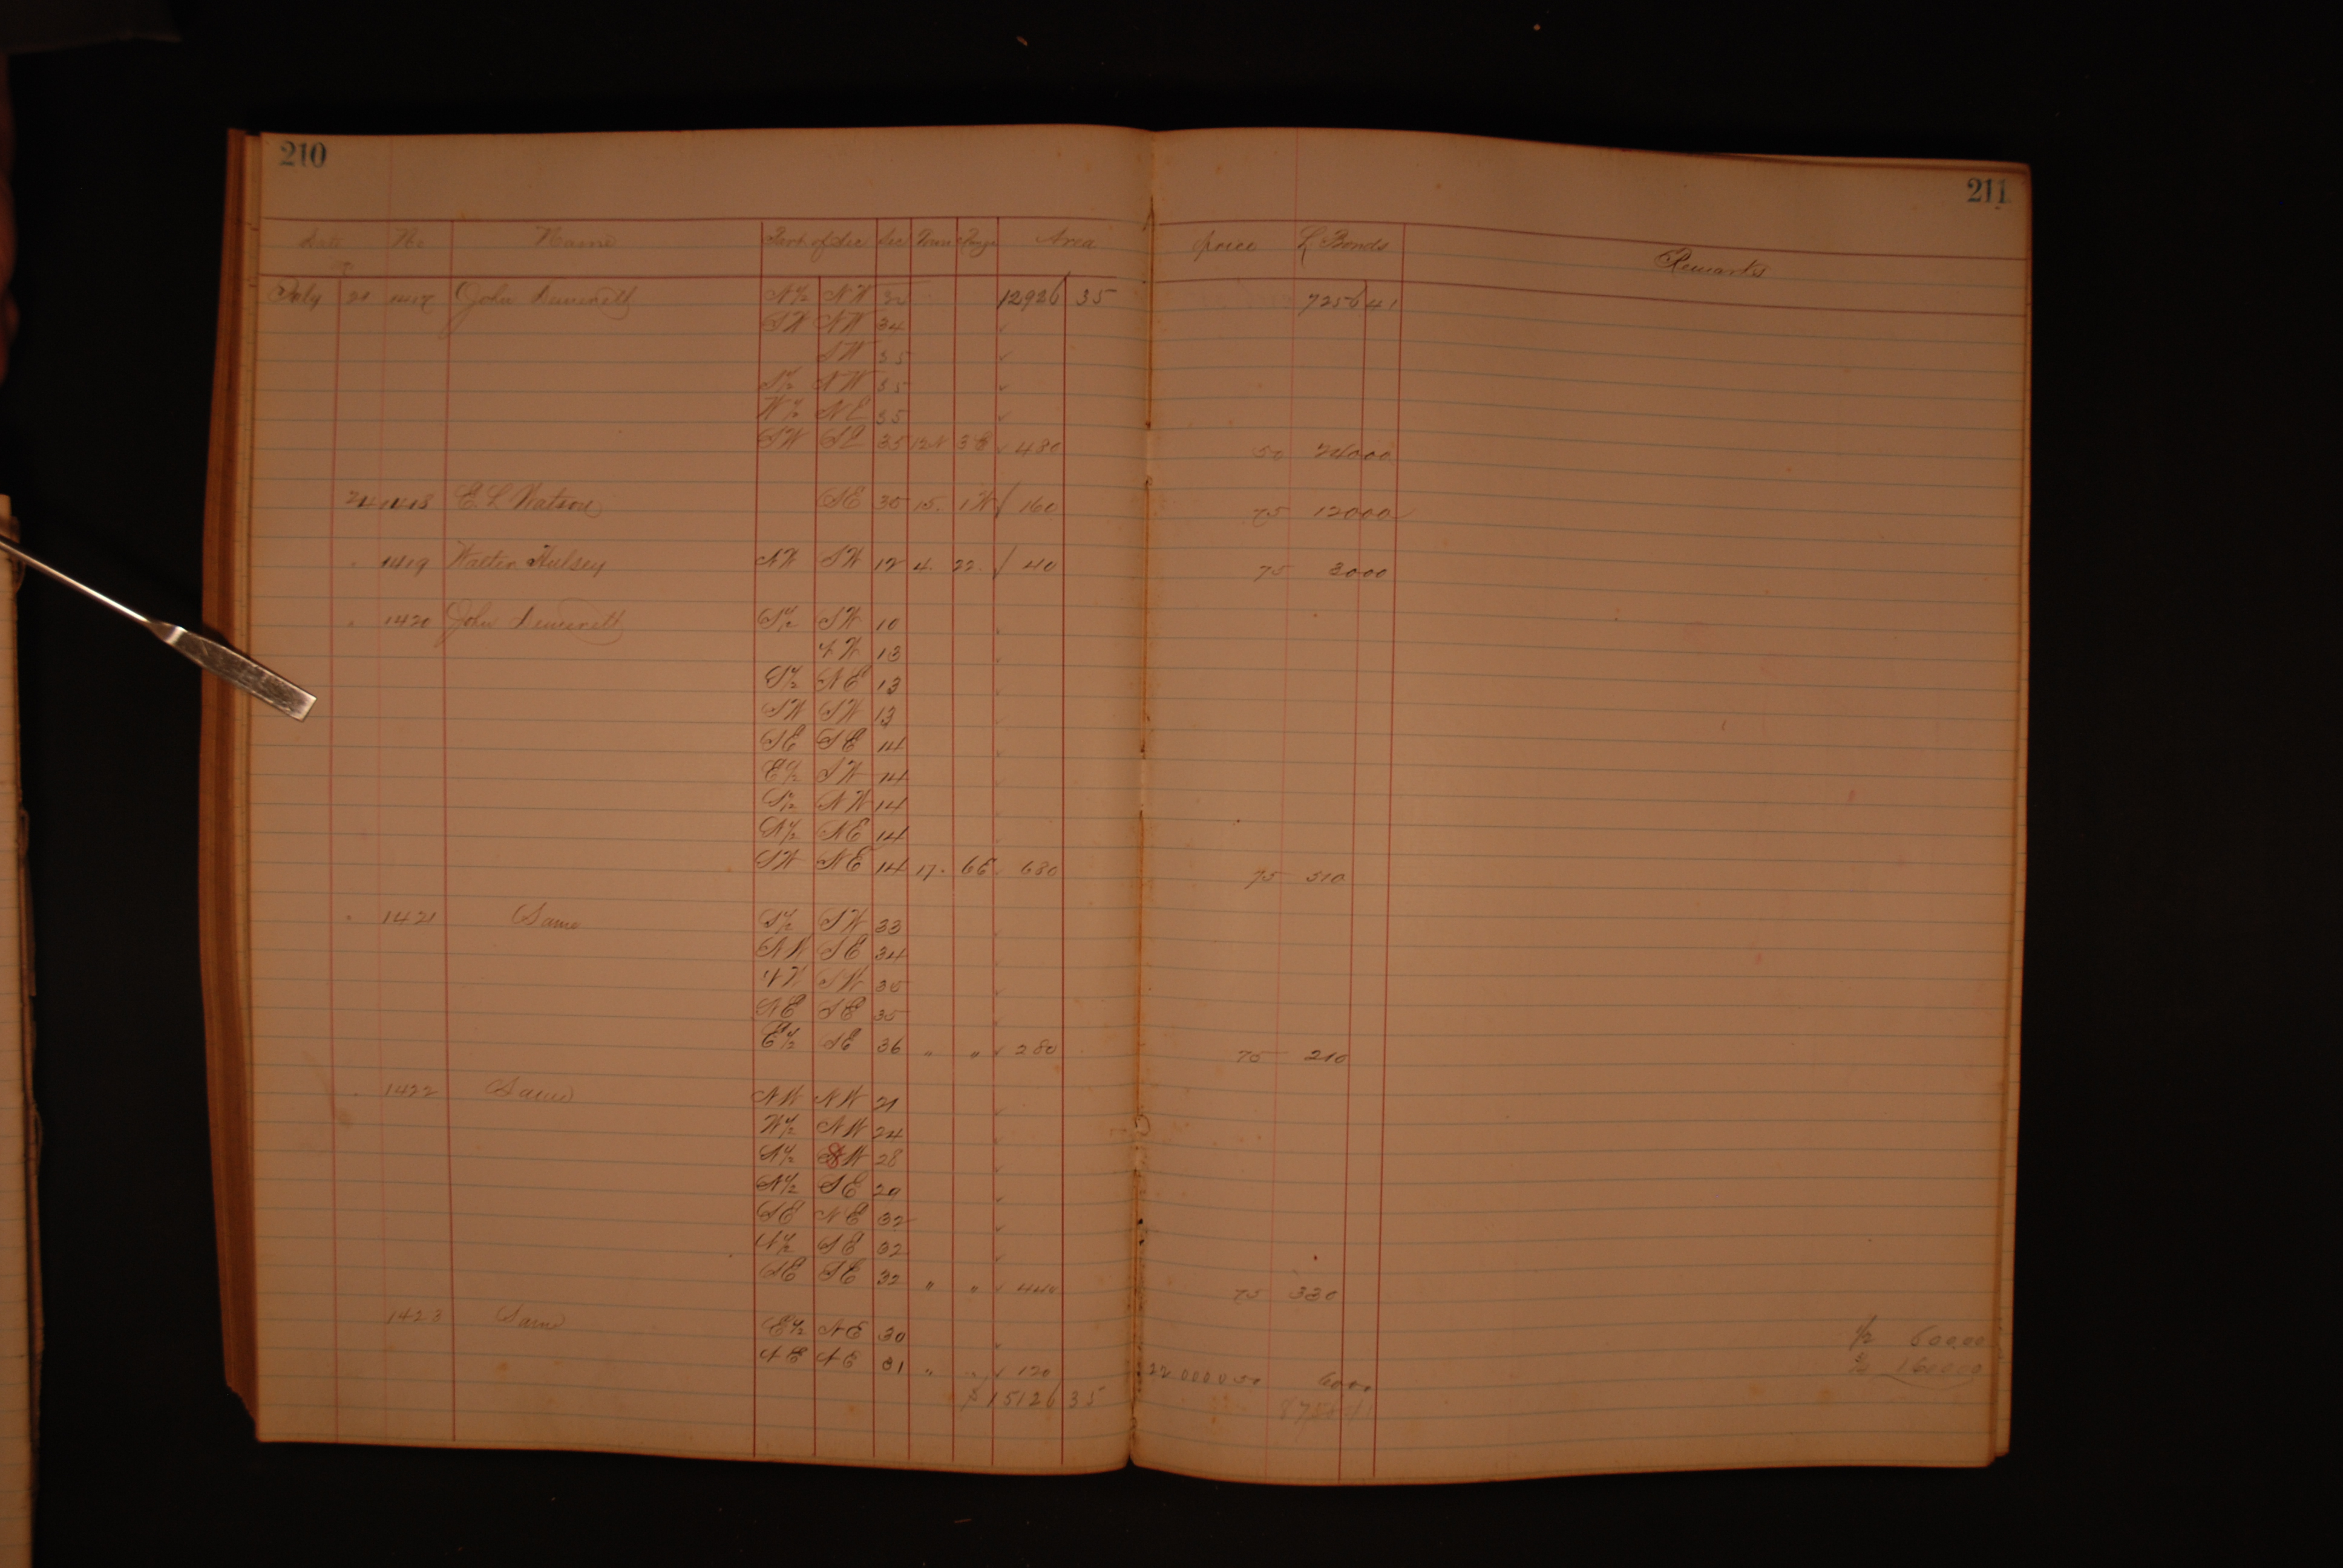 210
211
Date No Name Part of Sec Sec Town Range Area price L Bonds Remarks
July 21 1417 John N½ NW 32 12926 35 7256 41
SW NW 34
SW 35
S½ NW 35
W½ NE 35
SW SE 35 12N 3E 480 50 24000
24 1418 E. L. Watson SE 35 15. 1W 160 75 12000
" 1419 Walter Hulsey NW SW 12 4. 22. 40 75 3000
" 1420 John S½ SW 10
NW 13
S½ NE 13
SW SW 13
SE SE 14
E½ SW 14
S½ NW 14
N½ NE 14
SW NE 14 17. 6E. 680 75 510
" 1421 Same S½ SW 33
NW SE 34
NW SW 35
NE SE 35
E½ SE 36 " " 280 75 210
" 1422 Same NW NW 21
W½ NW 24
N½ SW 28
N½ SE 29
SE NE 32
N½ SE 32
SE SE 32 " " 440 75 330
1423 Same E½ NE 30
NE NE 31 " " 120 50 6000
15126 35